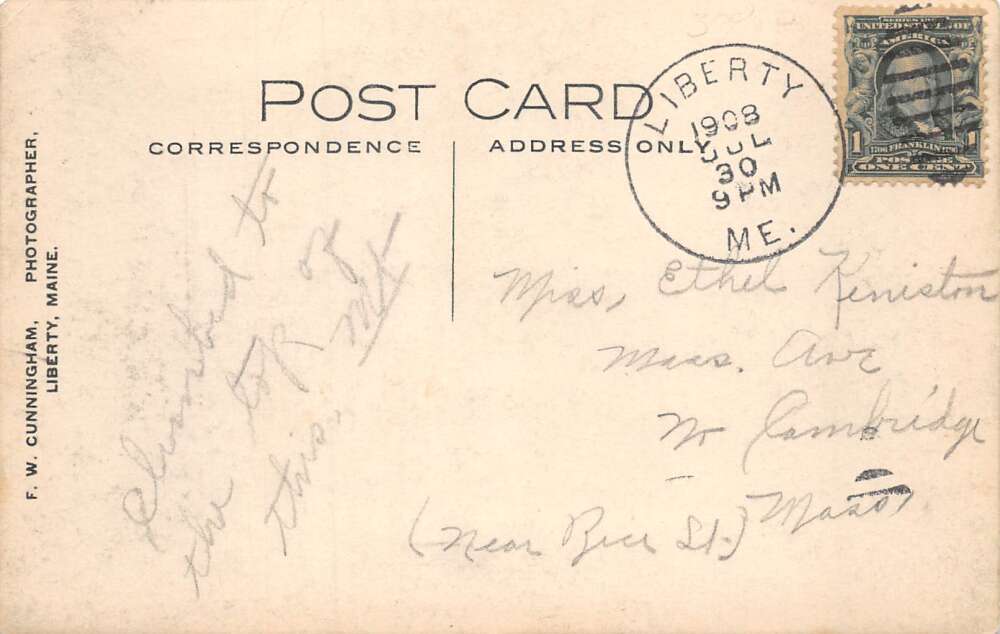 POST CARD
CORRESPONDENCE
ADDRESS ONLY
LIBERTY
1908
JUL
30
9 PM
ME.
SERIES 1902
UNITED STATES OF
AMERICA
1
FRANKLIN
POSTAGE
ONE CENT
F. W. CUNNINGHAM, PHOTOGRAPHER,
LIBERTY, MAINE.
Climbed to
the top of
this. MK
Miss, Ethel Keniston
Mass. Ave
No Cambridge
Mass,
(Near Rice St.)